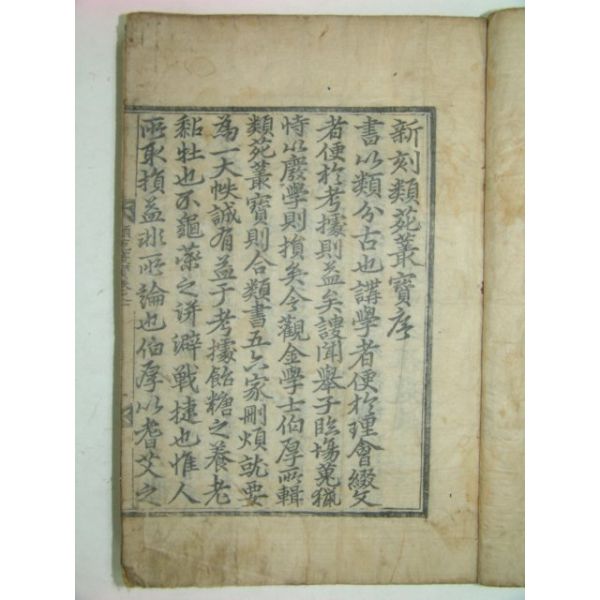 新刻類苑叢寶序
書以類分古也講學者便於理會綴文
者便於考據則益矣謏聞舉子臨場蒐獵
恃以廢學則損矣今觀金學士伯厚所輯
類苑叢寶則合類書五六家刪煩就要
為一大帙誠有益于考據飴糖之養老
黏牡也不龜藥之洴澼戰捷也惟人
所取損益非所論也伯厚以耆艾之